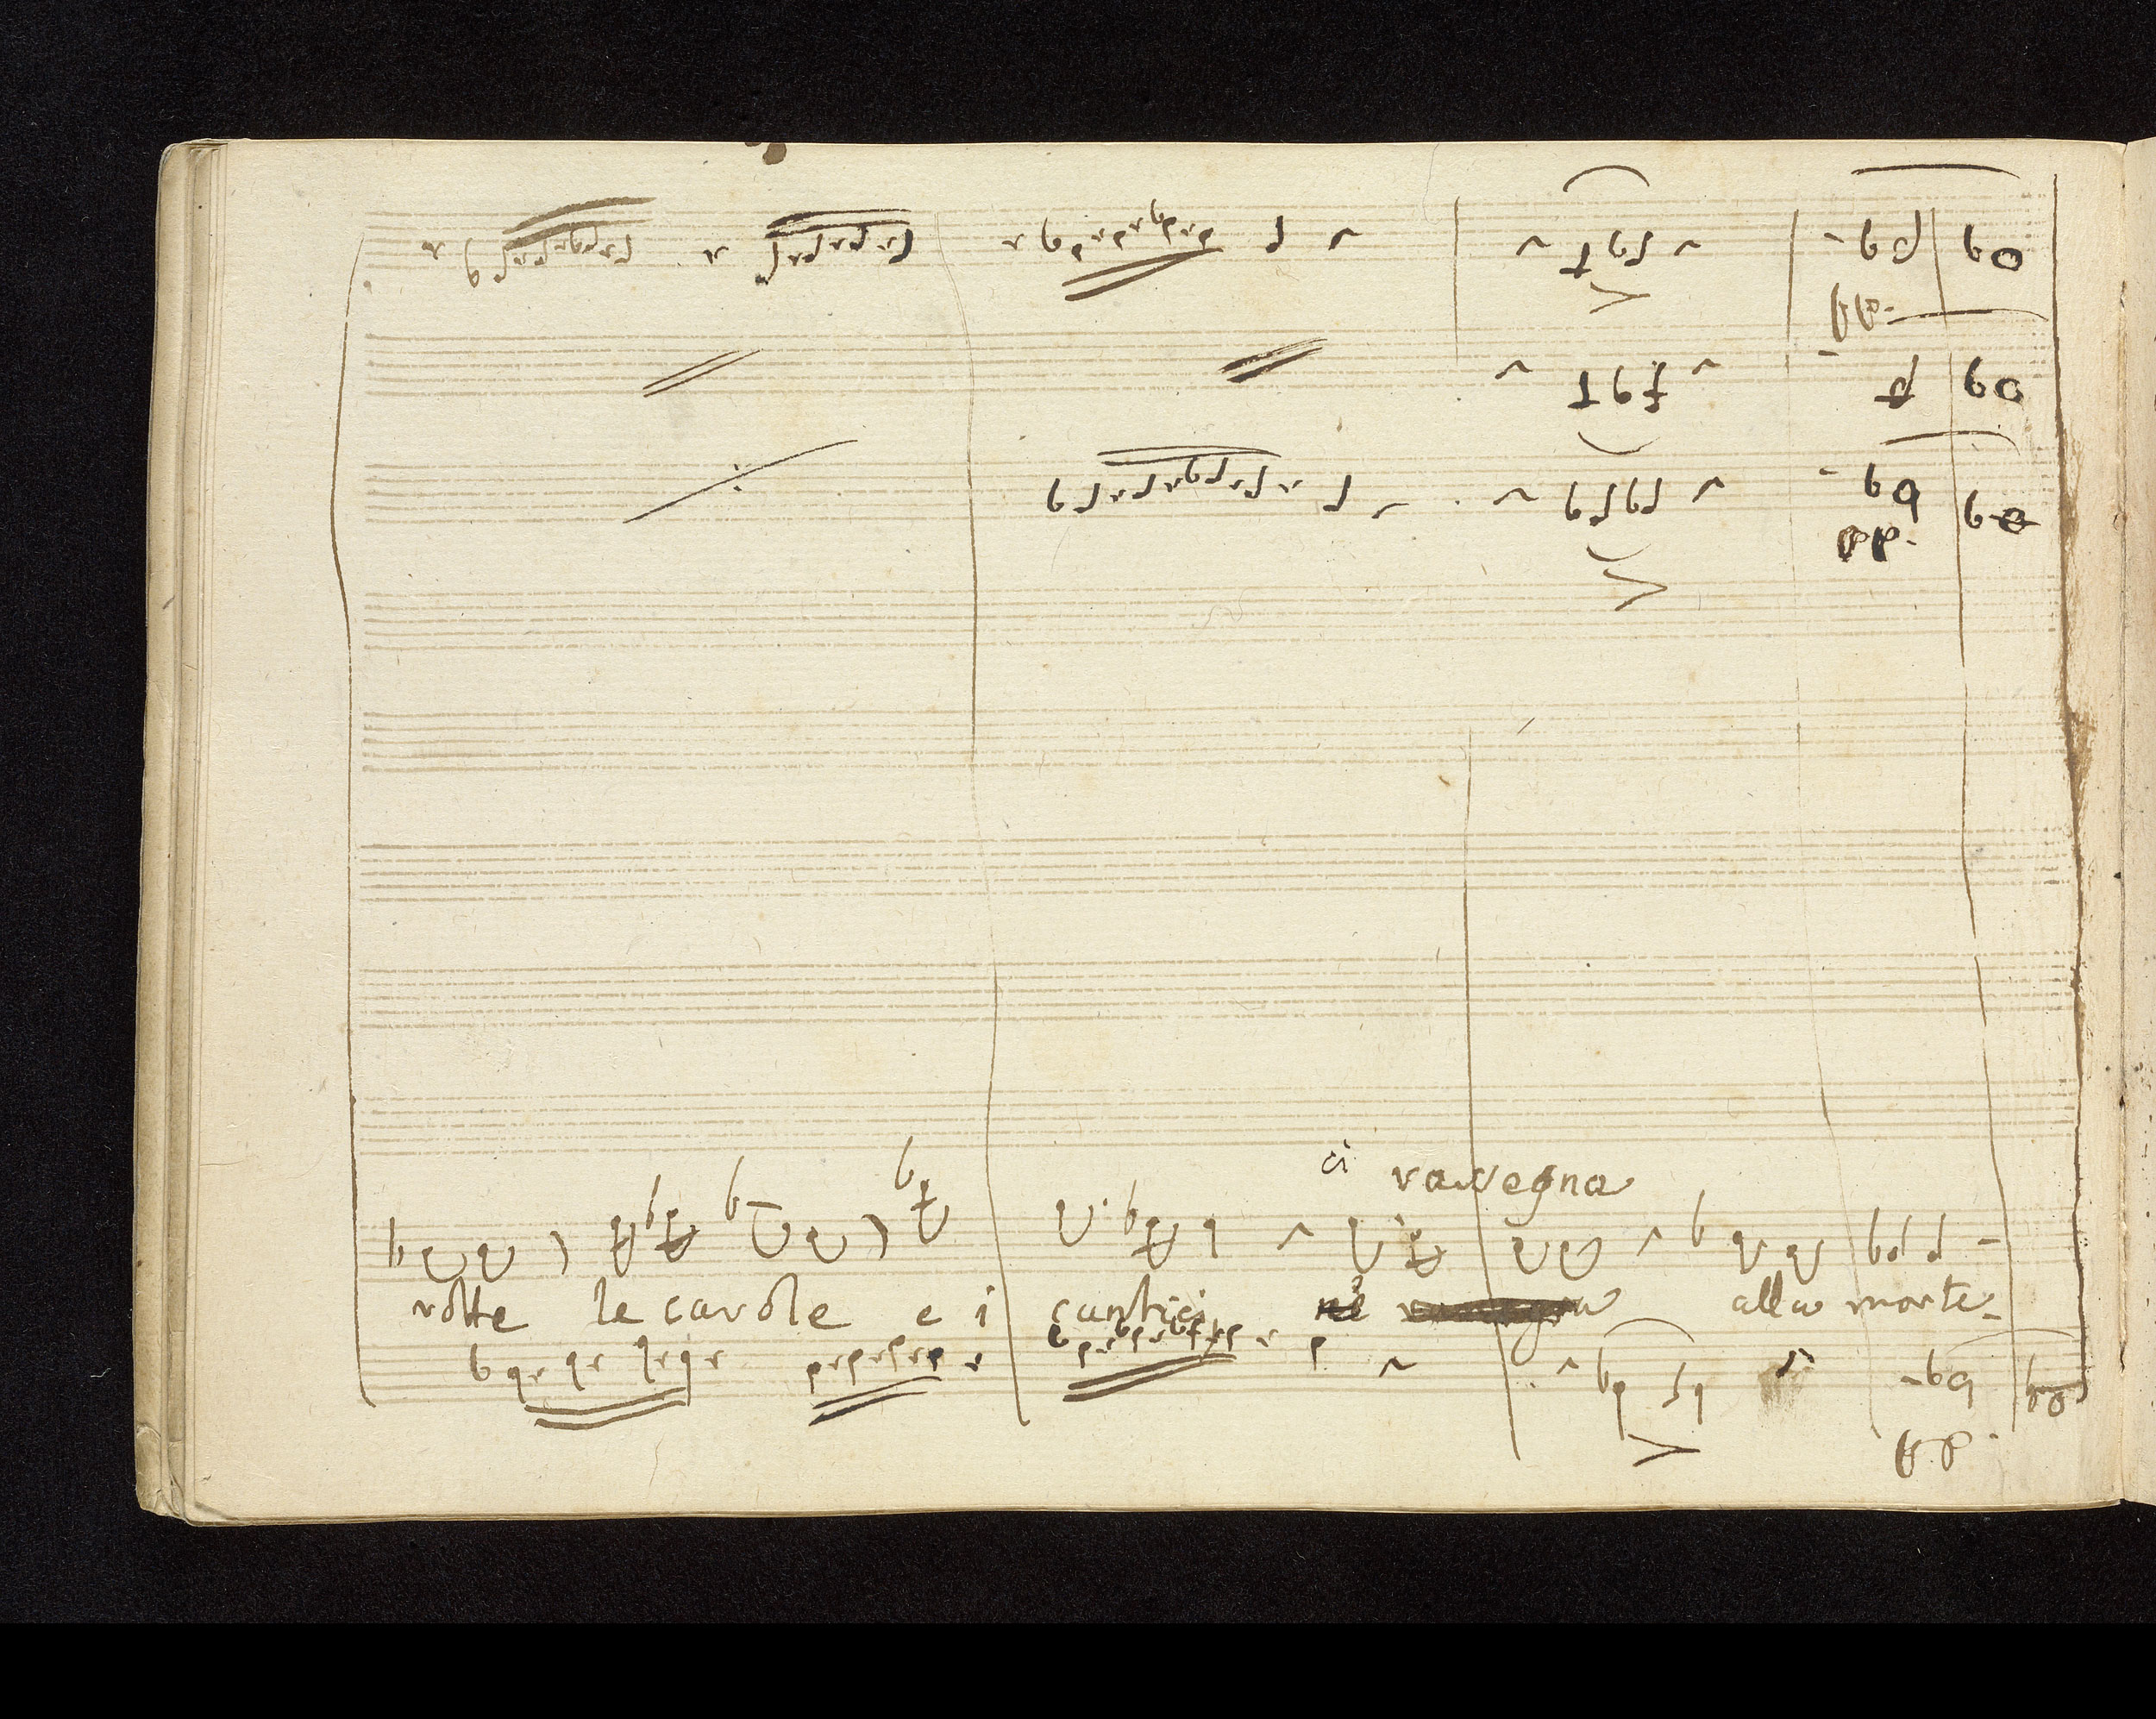 pp.
pp.
ci rassegna
volte le carole e i cantici alla morte
pp.